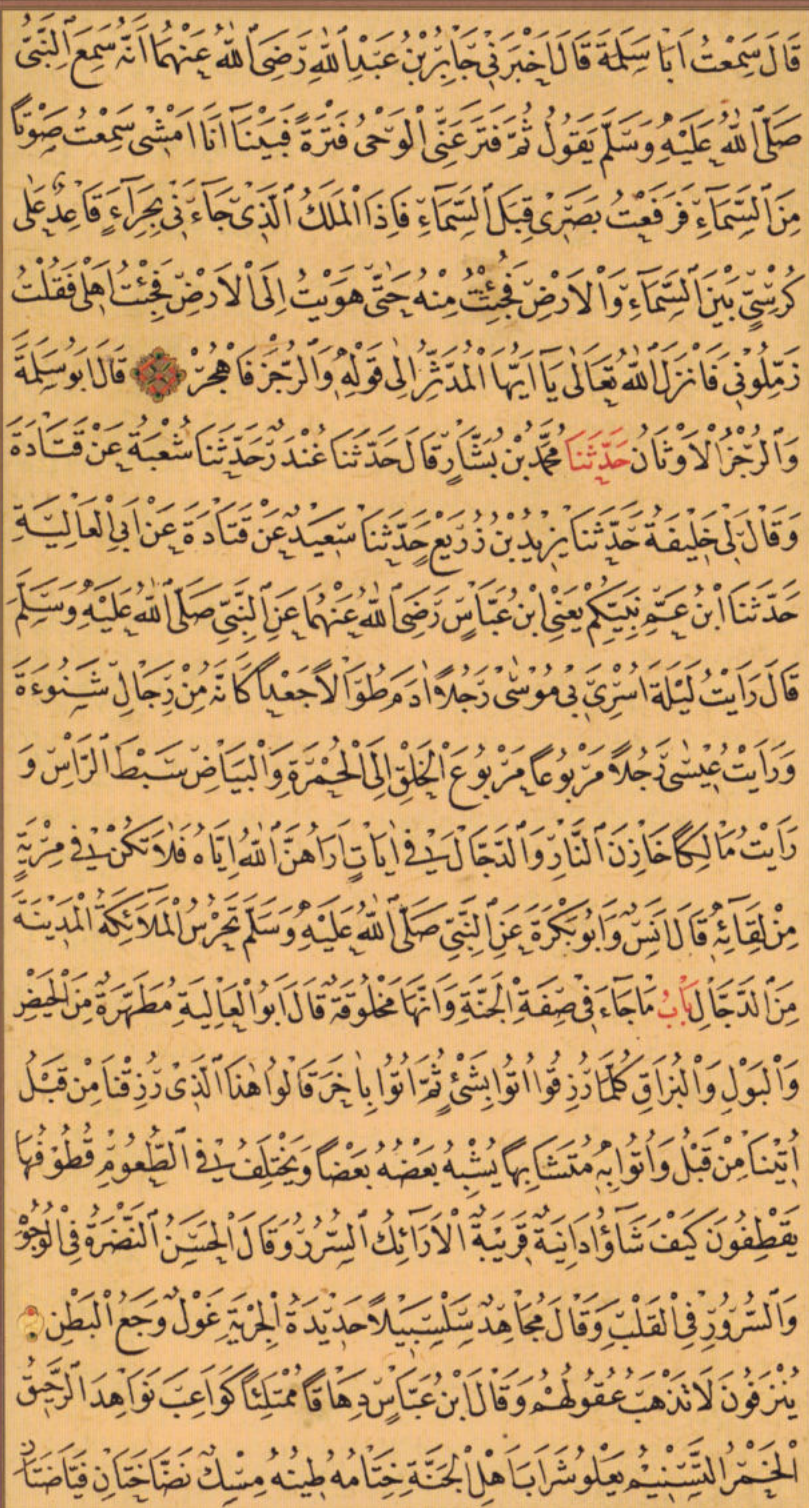 قَالَ سَمِعْتُ اَبَا سَلَمَةَ قَالَ اَخْبَرَنِي جَابِرُ بْنُ عَبْدِ اللّٰهِ رَضِيَ اللّٰهُ عَنْهُمَا اَنَّهُ سَمِعَ النَّبِيَّ
صَلَّى اللّٰهُ عَلَيْهِ وَسَلَّمَ يَقُولُ ثُمَّ فَتَرَ عَنِّي الْوَحْيُ فَتْرَةً فَبَيْنَا اَنَا اَمْشِي سَمِعْتُ صَوْتًا
مِنَ السَّمَآءِ فَرَفَعْتُ بَصَرِي قِبَلَ السَّمَآءِ فَاِذَا الْمَلَكُ الَّذِي جَآءَنِي بِحِرَآءٍ قَاعِدٌ عَلٰى
كُرْسِيٍّ بَيْنَ السَّمَآءِ وَالْاَرْضِ فَجُئِثْتُ مِنْهُ حَتّٰى هَوَيْتُ اِلَى الْاَرْضِ فَجِئْتُ اَهْلِي فَقُلْتُ
زَمِّلُونِي فَاَنْزَلَ اللّٰهُ تَعَالٰى يَآ اَيُّهَا الْمُدَّثِّرُ اِلٰى قَوْلِهِ وَالرُّجْزَ فَاهْجُرْ قَالَ اَبُو سَلَمَةَ
وَالرُّجْزُ الْاَوْثَانُ حَدَّثَنَا مُحَمَّدُ بْنُ بَشَّارٍ قَالَ حَدَّثَنَا غُنْدَرٌ حَدَّثَنَا شُعْبَةُ عَنْ قَتَادَةَ
وَقَالَ لِي خَلِيفَةُ حَدَّثَنَا يَزِيدُ بْنُ زُرَيْعٍ حَدَّثَنَا سَعِيدٌ عَنْ قَتَادَةَ عَنْ اَبِي الْعَالِيَةِ
حَدَّثَنَا ابْنُ عَمِّ نَبِيِّكُمْ يَعْنِي ابْنَ عَبَّاسٍ رَضِيَ اللّٰهُ عَنْهُمَا عَنِ النَّبِيِّ صَلَّى اللّٰهُ عَلَيْهِ وَسَلَّمَ
قَالَ رَاَيْتُ لَيْلَةَ اُسْرِيَ بِي مُوسٰى رَجُلًا اٰدَمَ طُوَالًا جَعْدًا كَاَنَّهُ مِنْ رِجَالِ شَنُوءَةَ
وَرَاَيْتُ عِيسٰى رَجُلًا مَرْبُوعًا مَرْبُوعَ الْخَلْقِ اِلَى الْحُمْرَةِ وَالْبَيَاضِ سَبْطَ الرَّأْسِ وَ
رَاَيْتُ مَالِكًا خَازِنَ النَّارِ وَالدَّجَّالَ فِي اٰيَاتٍ اَرَاهُنَّ اللّٰهُ اِيَّاهُ فَلَا تَكُنْ فِي مِرْيَةٍ
مِنْ لِقَآئِهِ قَالَ اَنَسٌ وَاَبُو بَكْرَةَ عَنِ النَّبِيِّ صَلَّى اللّٰهُ عَلَيْهِ وَسَلَّمَ تَحْرُسُ الْمَلَآئِكَةُ الْمَدِينَةَ
مِنَ الدَّجَّالِ بَابُ مَا جَآءَ فِي صِفَةِ الْجَنَّةِ وَاَنَّهَا مَخْلُوقَةٌ قَالَ اَبُو الْعَالِيَةِ مُطَهَّرَةٌ مِنَ الْحَيْضِ
وَالْبَوْلِ وَالْبُزَاقِ كُلَّمَا رُزِقُوا اُتُوا بِشَيْءٍ ثُمَّ اُتُوا بِاٰخَرَ قَالُوا هٰذَا الَّذِي رُزِقْنَا مِنْ قَبْلُ
اُتِينَا مِنْ قَبْلُ وَاُتُوا بِهِ مُتَشَابِهًا يُشْبِهُ بَعْضُهُ بَعْضًا وَيَخْتَلِفُ فِي الطُّعُومِ قُطُوفُهَا
يَقْطِفُونَ كَيْفَ شَآؤُا دَانِيَةٌ قَرِيبَةٌ الْاَرَآئِكُ السُّرُرُ وَقَالَ الْحَسَنُ النَّضْرَةُ فِي الْوُجُوْ
وَالسُّرُورُ فِي الْقَلْبِ وَقَالَ مُجَاهِدٌ سَلْسَبِيلًا حَدِيدَةُ الْجِرْيَةِ غَوْلٌ وَجَعُ الْبَطْنِ
يُنْزَفُونَ لَا تَذْهَبُ عُقُولُهُمْ وَقَالَ ابْنُ عَبَّاسٍ دِهَاقًا مُمْتَلِئًا كَوَاعِبَ نَوَاهِدَ الرَّحِيقُ
الْخَمْرُ التَّسْنِيمُ يَعْلُو شَرَابَ اَهْلِ الْجَنَّةِ خِتَامُهُ طِينُهُ مِسْكٌ نَضَّاخَتَانِ فَيَّاضَتَانِ